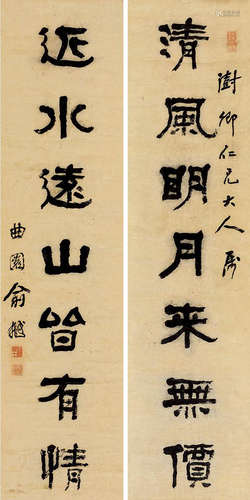 澍卿仁兄大人屬
清風明月来無價
近水遠山皆有情
曲園俞樾